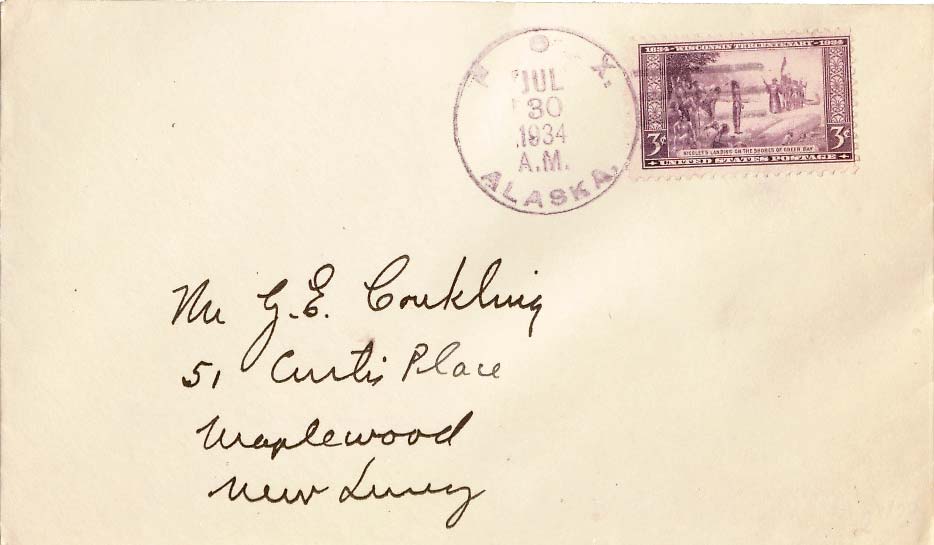 N O X.
JUL
30
1934
A.M.
ALASKA,
1634-WISCONSIN TERCENTENARY-1934
3¢ 3¢
NICOLET'S LANDING ON THE SHORES OF GREEN BAY
UNITED STATES POSTAGE
Mr G.E. Conkling
51 Curtis Place
Maplewood
New Jersey